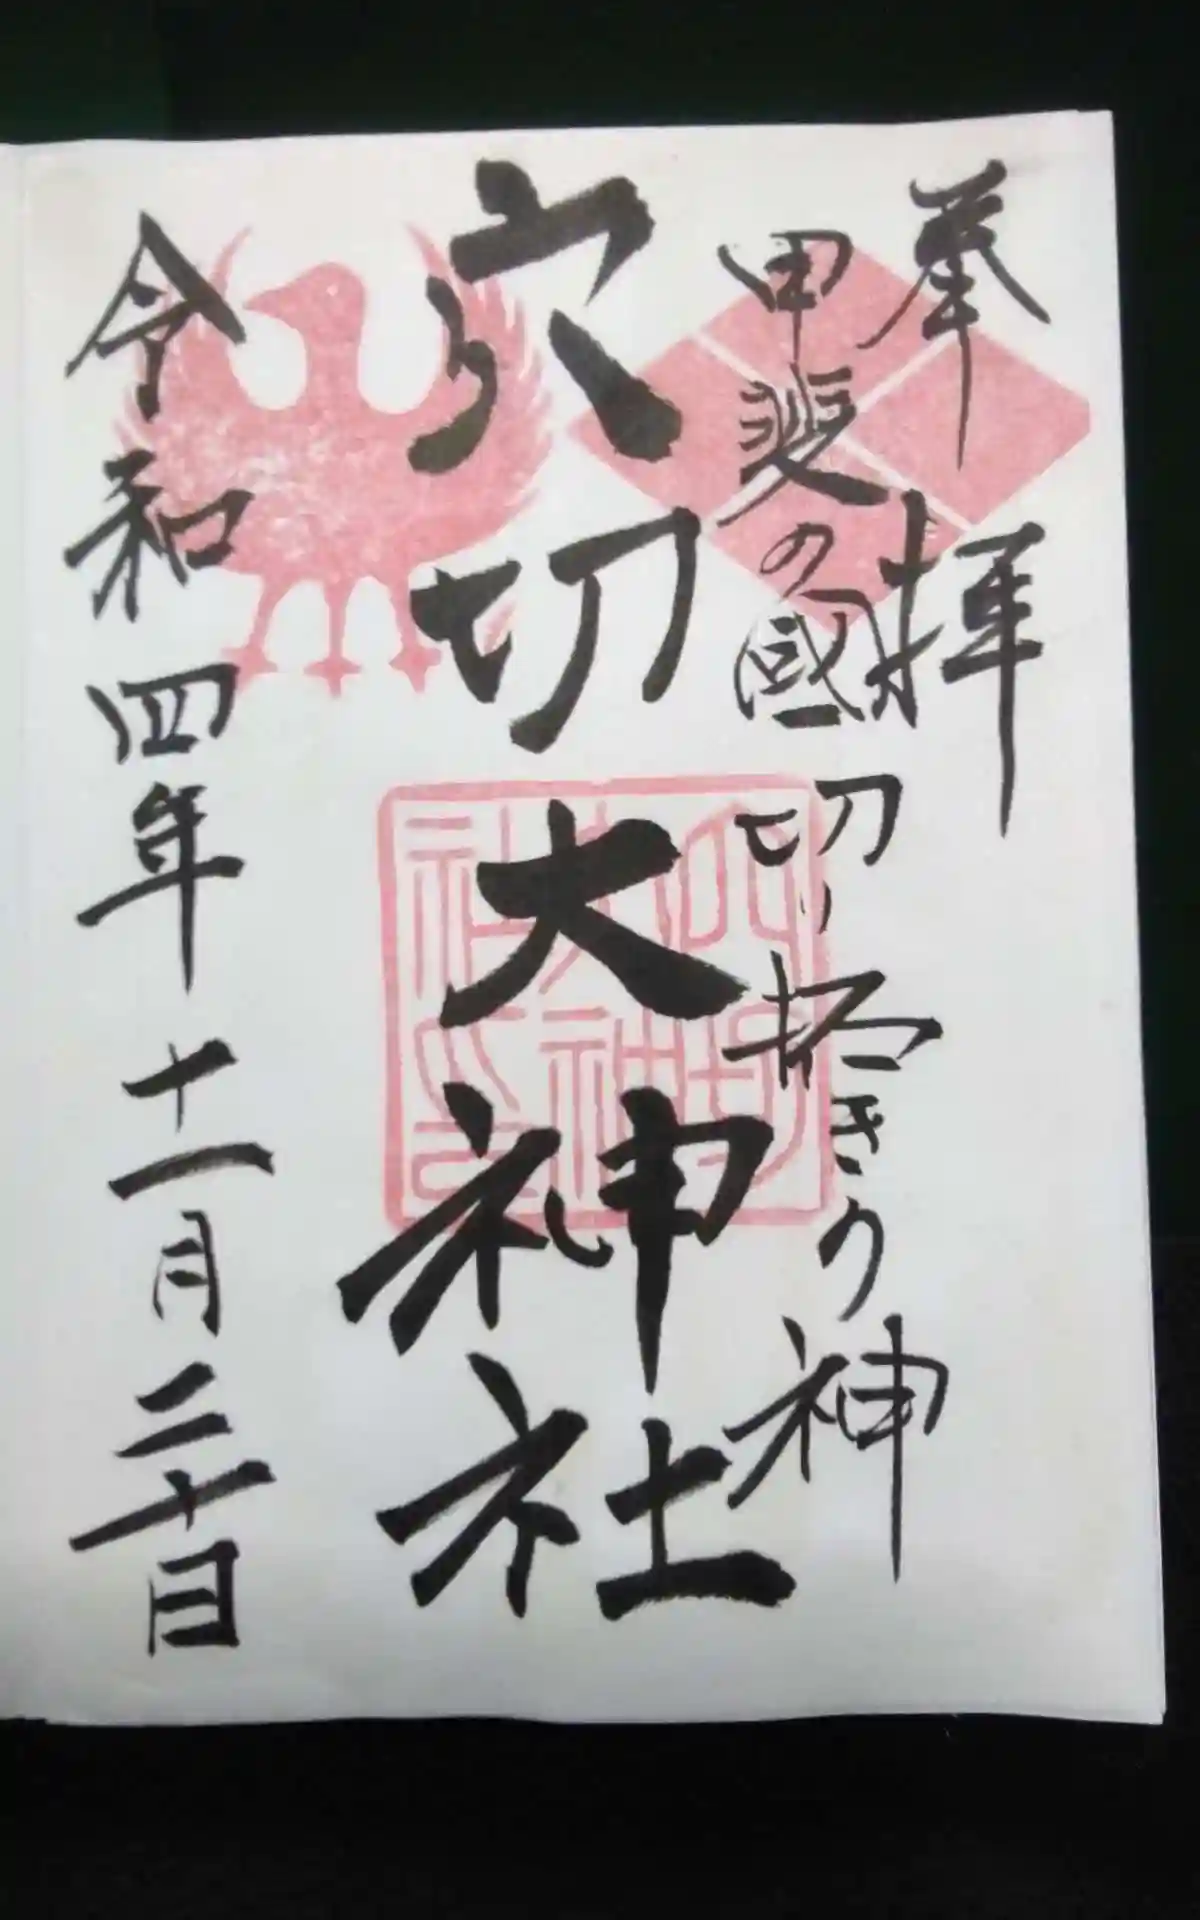 奉拝
甲斐の國切り拓きの神
穴切大神社
令和四年十一月二十日